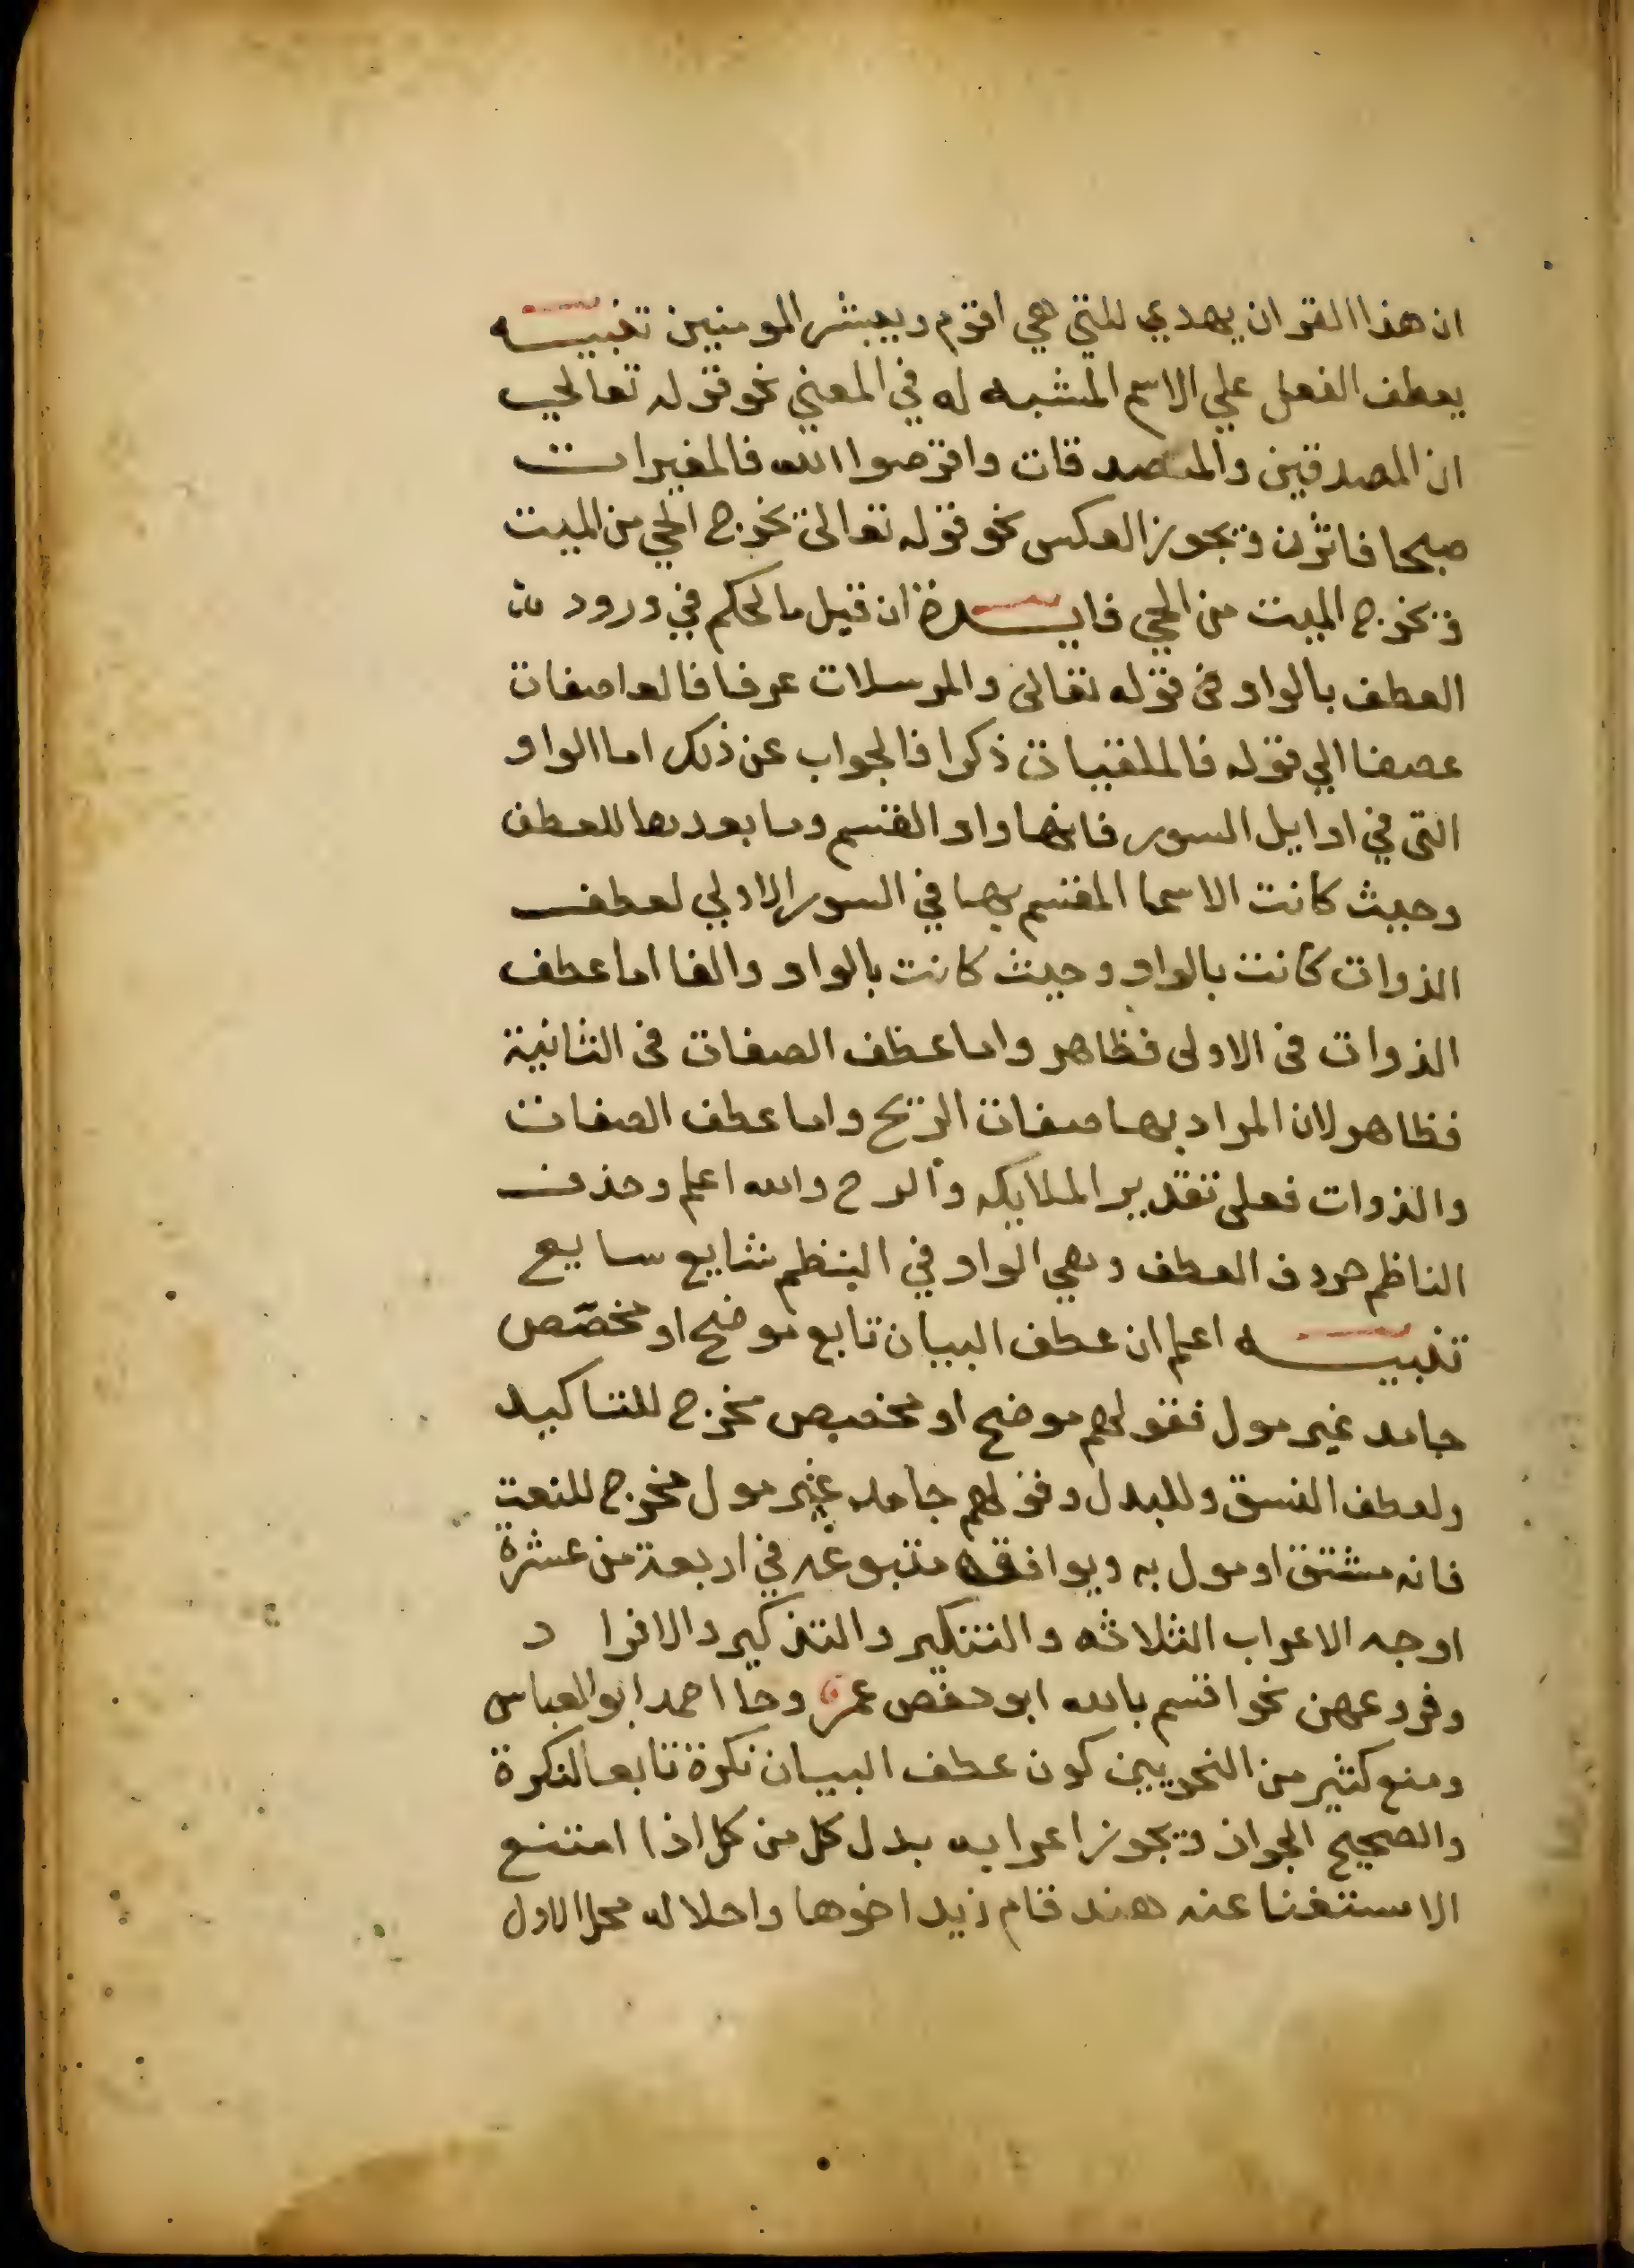 ان هذا القران يهدي للتي هي اقوم ويبشر المومنين تنبيه
يعطف الفعل علي الاسم المشبه له في المعني نحو قوله تعالي
ان المصدقين والمتصدقات واقرضوا الله فالمغيرات
صبحا فاثرن ويجوز العكس نحو قوله تعالى يخرج الحي من الميت
ويخرج الميت من الحي فايدة ان قيل ما الحكم في ورود
العطف بالواو في قوله تعالى والمرسلات عرفا فالعاصفات
عصفا الي قوله فالملقيات ذكرا فالجواب عن ذلك اما الواو
التي في اوايل السور فانها واو القسم وما بعدها للعطف
وحيث كانت الاسما المقسم بها في السور الاولي لعطف
الذوات كانت بالواو وحيث كانت بالواو والفا اما عطف
الذوات في الاولى فظاهر واما عطف الصفات في الثانية
فظاهر لان المراد بها صفات الريح واما عطف الصفات
والذوات فعلى تقدير الملايكه والرح والله اعلم وحذف
الناظم حروف العطف وهي الواو في النظم شايع سايع
تنبيه اعلم ان عطف البيان تابع موضح او مخصص
جامد غير مول فقولهم موضح او مخصص مخرج للتاكيد
ولعطف النسق وللبدل وقولهم جامد غير مول مخرج للنعت
فانه مشتق او مول به ويوافقه متبوعه في اربعة من عشرة
اوجه الاعراب الثلاثه والتنكير والتذكير والافراد
وفروعهن نحو اقسم بالله ابو حفص عمر وجا احمد ابو العباس
ومنع كثير من النحويين كون عطف البيان نكرة تابعا لنكرة
والصحيح الجواز ويجوز اعرابه بدل كل من كل اذا امتنع
الاستغنا عنه هند قام زيد اخوها واحلاله محل الاول